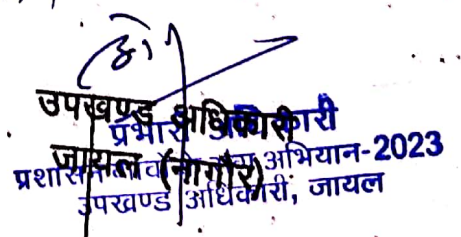 उपखण्ड अधिकारी
जायल (नागौर)
प्रभारी अधिकारी
प्रशासन अभियान-2023
उपखण्ड अधिकारी, जायल